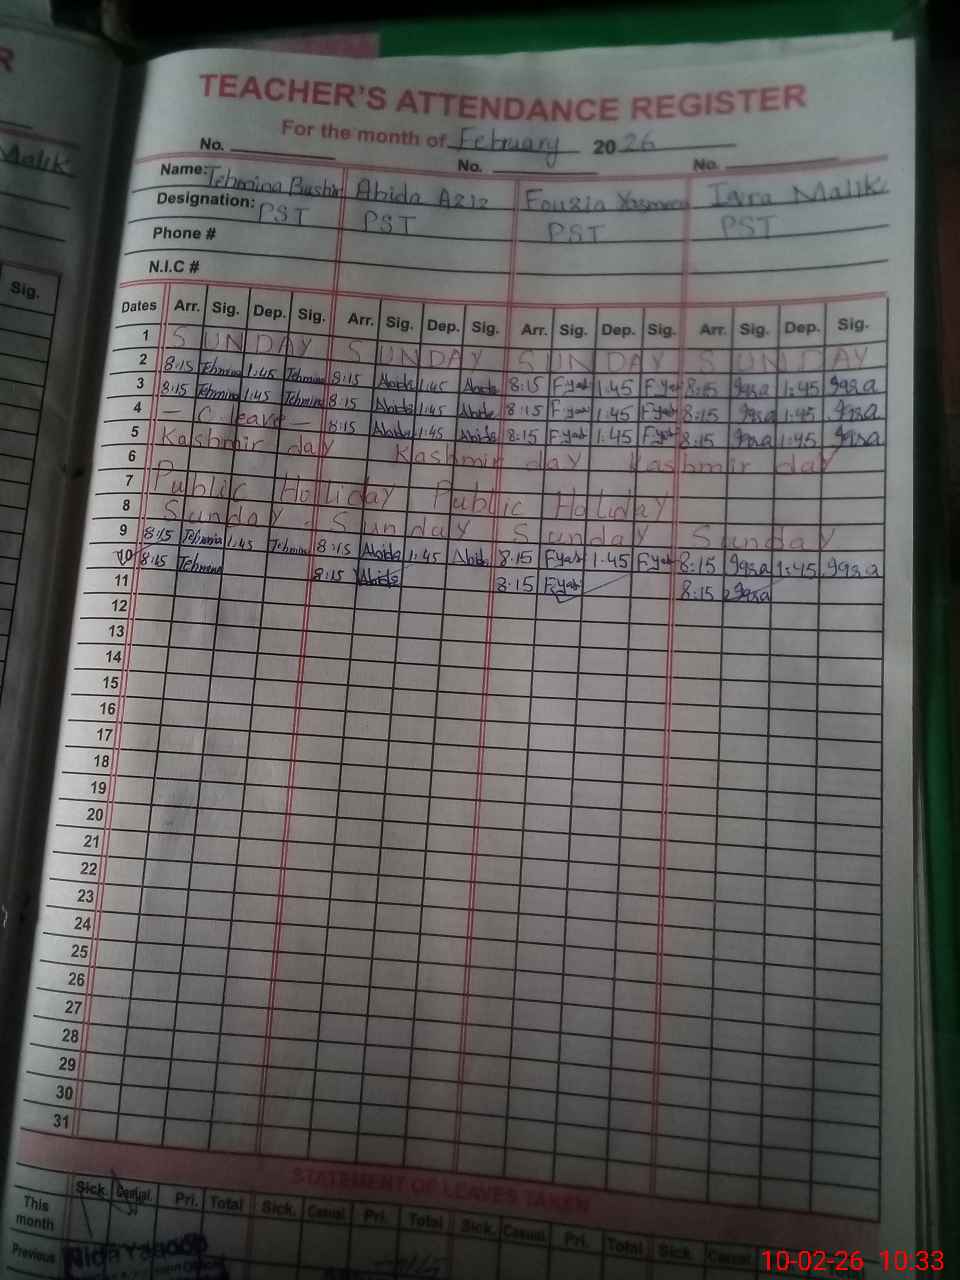 R
TEACHER'S ATTENDANCE REGISTER
For the month of February 2026
No. No. No.
Malik
Name: Tehmina Bashir Abida Aziz Fouzia Yasmeen Iqra Malik
Designation: PST PST PST PST
Phone #
N.I.C #
Sig.
Dates Arr. Sig. Dep. Sig. Arr. Sig. Dep. Sig. Arr. Sig. Dep. Sig. Arr. Sig. Dep. Sig.
1 SUNDAY SUNDAY SUNDAY SUNDAY
2 8:15 Tehmina 1:45 Tehmina 8:15 Abida 1:45 Abida 8:15 F.yas 1:45 F.yas 8:15 Iqra 1:45 Iqra
3 8:15 Tehmina 1:45 Tehmina 8:15 Abida 1:45 Abida 8:15 F.yas 1:45 F.yas 8:15 Iqra 1:45 Iqra
4 — C.leave — 8:15 Abida 1:45 Abida 8:15 F.yas 1:45 F.yas 8:15 Iqra 1:45 Iqra
5 Kashmir day Kashmir day Kashmir day
6
7 Public Holiday Public Holiday
8 Sunday Sunday Sunday Sunday
9 8:15 Tehmina 1:45 Tehmina 8:15 Abida 1:45 Abida 8:15 F.yas 1:45 F.yas 8:15 Iqra 1:45 Iqra
10 8:15 Tehmina 8:15 Abida 8:15 F.yas 8:15 Iqra
11
12
13
14
15
16
17
18
19
20
21
22
23
24
25
26
27
28
29
30
31
STATEMENT OF LEAVES TAKEN
Sick. Casual. Pri. Total Sick. Casual Pri. Total Sick. Casual. Pri. Total Sick. Casual
This month
Previous
10-02-26 10:33